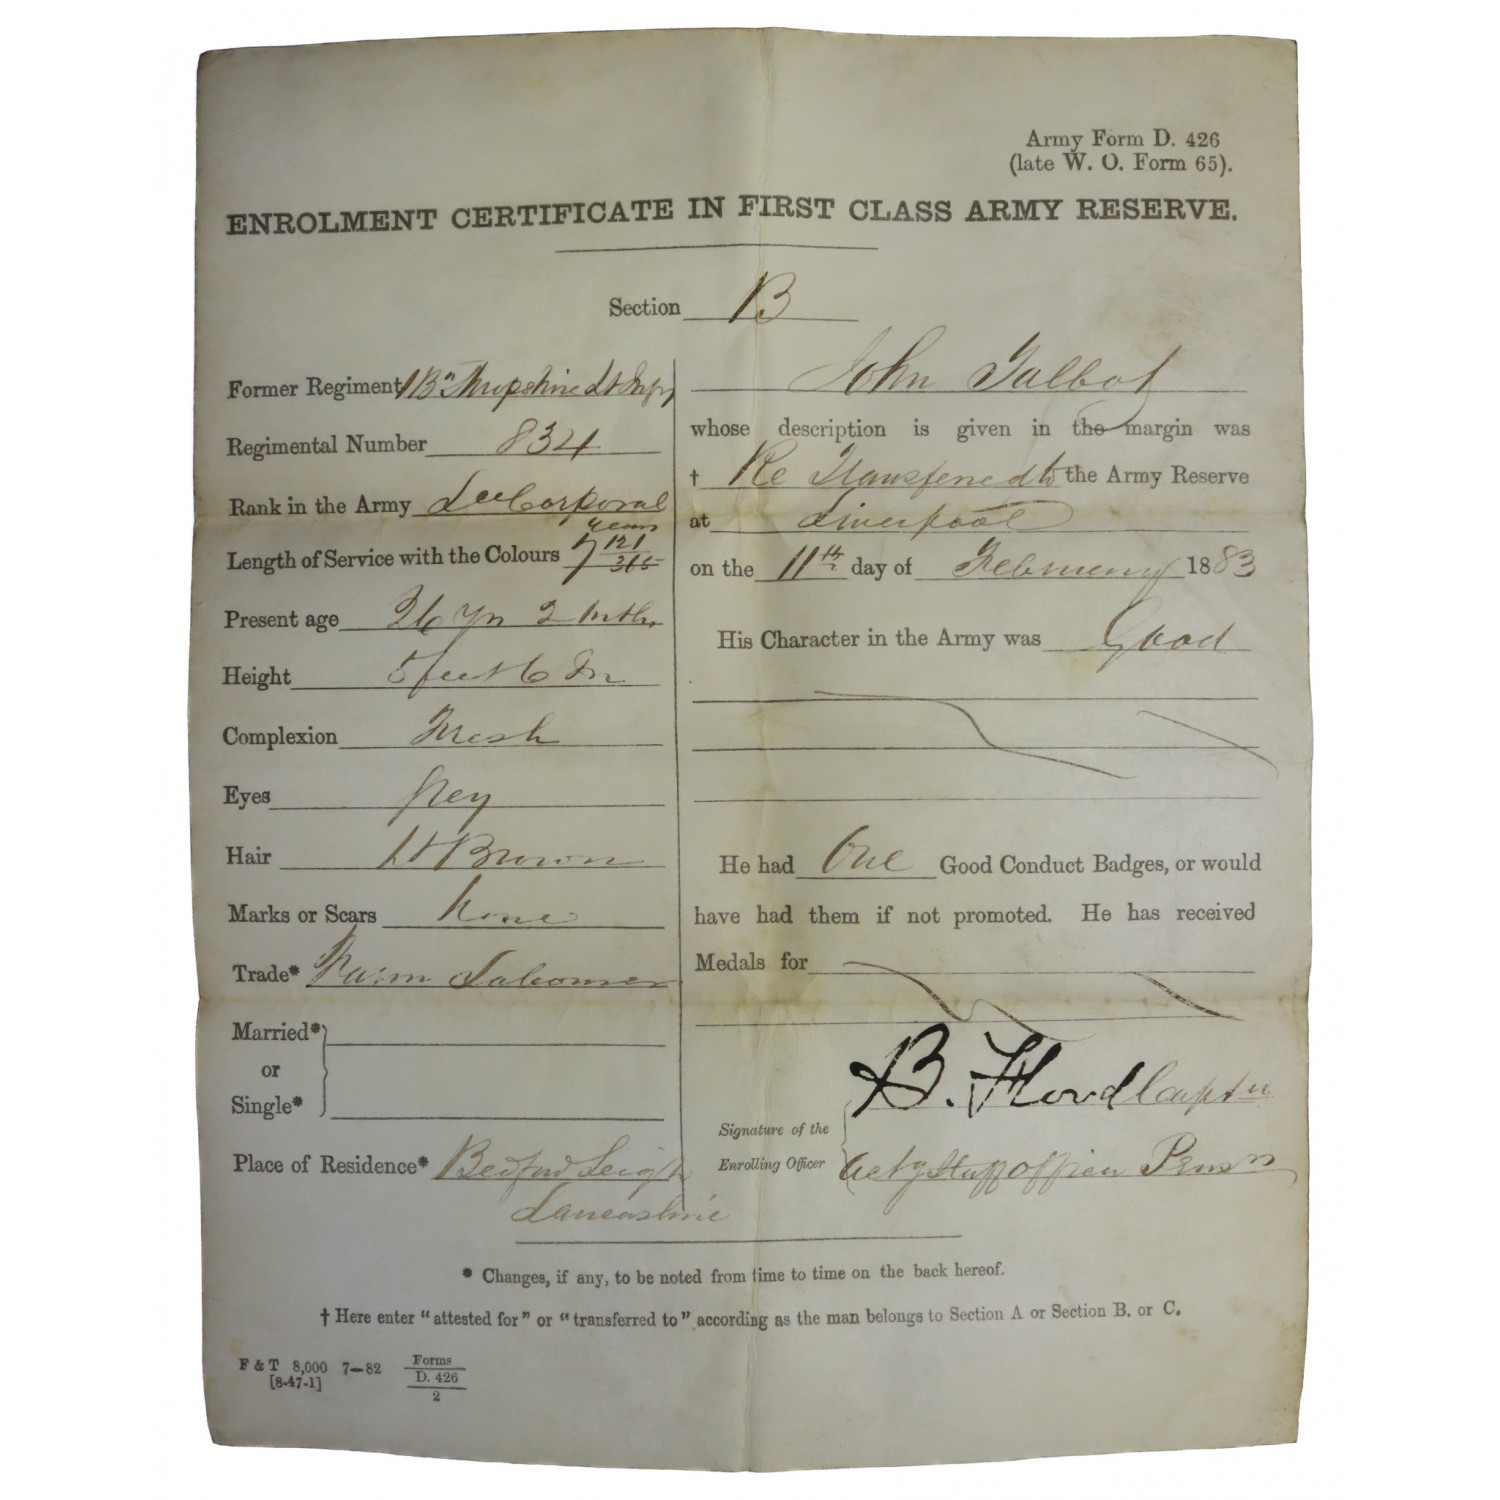 Army Form D. 426
(late W. O. Form 65).
ENROLMENT CERTIFICATE IN FIRST CLASS ARMY RESERVE.
Section B
Former Regiment 1 Bn Shropshire Lt Infy
Regimental Number 834
Rank in the Army Lce Corporal
Length of Service with the Colours 7 years 121/365
Present age 26 yrs 2 mths
Height 5 feet 6 In
Complexion Fresh
Eyes Grey
Hair Lt Brown
Marks or Scars None
Trade* Farm Labourer
Married*
or
Single*
Place of Residence* Bedford Leigh
Lancashire
John Talbot
whose description is given in the margin was
† Re Transferred to the Army Reserve
at Liverpool
on the 11th day of February 1883
His Character in the Army was Good
He had One Good Conduct Badges, or would
have had them if not promoted. He has received
Medals for
B. Captn
Signature of the
Enrolling Officer Actg Staff Officer Pensns
* Changes, if any, to be noted from time to time on the back hereof.
† Here enter "attested for" or "transferred to" according as the man belongs to Section A or Section B. or C.
F & T 8,000 7—82
[8-47-1]
Forms
D. 426
2